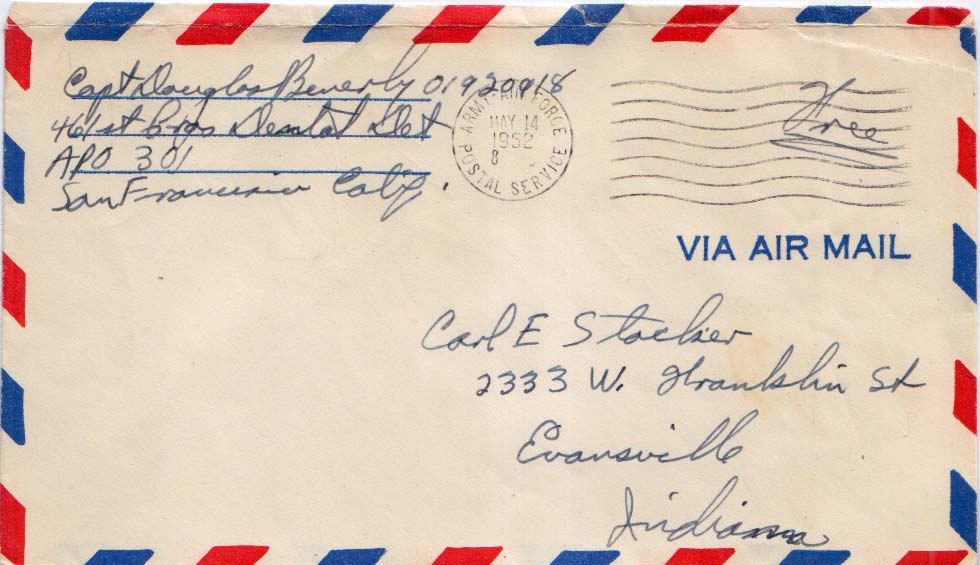 Capt Douglas Beverly 01920918
461st Pros Dental Det
APO 301
San Francisco Calif.
ARMY-AIR FORCE
MAY 14
1952
8
POSTAL SERVICE
Free
VIA AIR MAIL
Carl E Stocker
2333 W. Franklin St
Evansville
Indiana